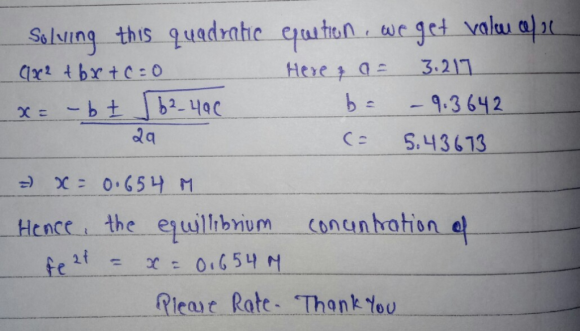 Solving this quadratic equation, we get value of x
ax² + bx + c = 0 Here, a = 3.217
x = -b ± √b²-4ac / 2a b = -9.3642
c = 5.43673
⇒ x = 0.654 M
Hence, the equilibrium concentration of
Fe²⁺ = x = 0.654 M
Please Rate. Thank You